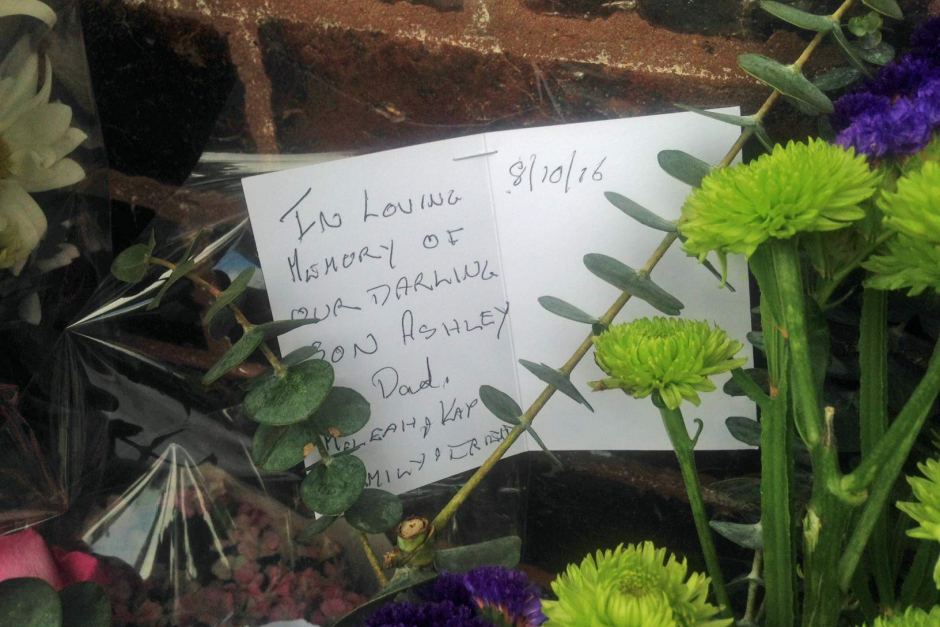 IN LOVING
MEMORY OF
OUR DARLING
SON ASHLEY
Dad,
& KAY
8/10/16